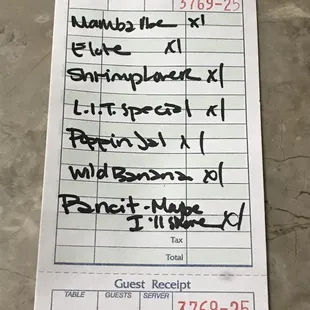 3769-25
Mamba lbe x1
Elote x1
Shrimp Lover x1
L.I.T. Special x1
Poppin Jal x1
Wild Banana x1
Pancit - Maybe
I'll share x1
Tax
Total
Guest Receipt
TABLE GUESTS SERVER
3769-25